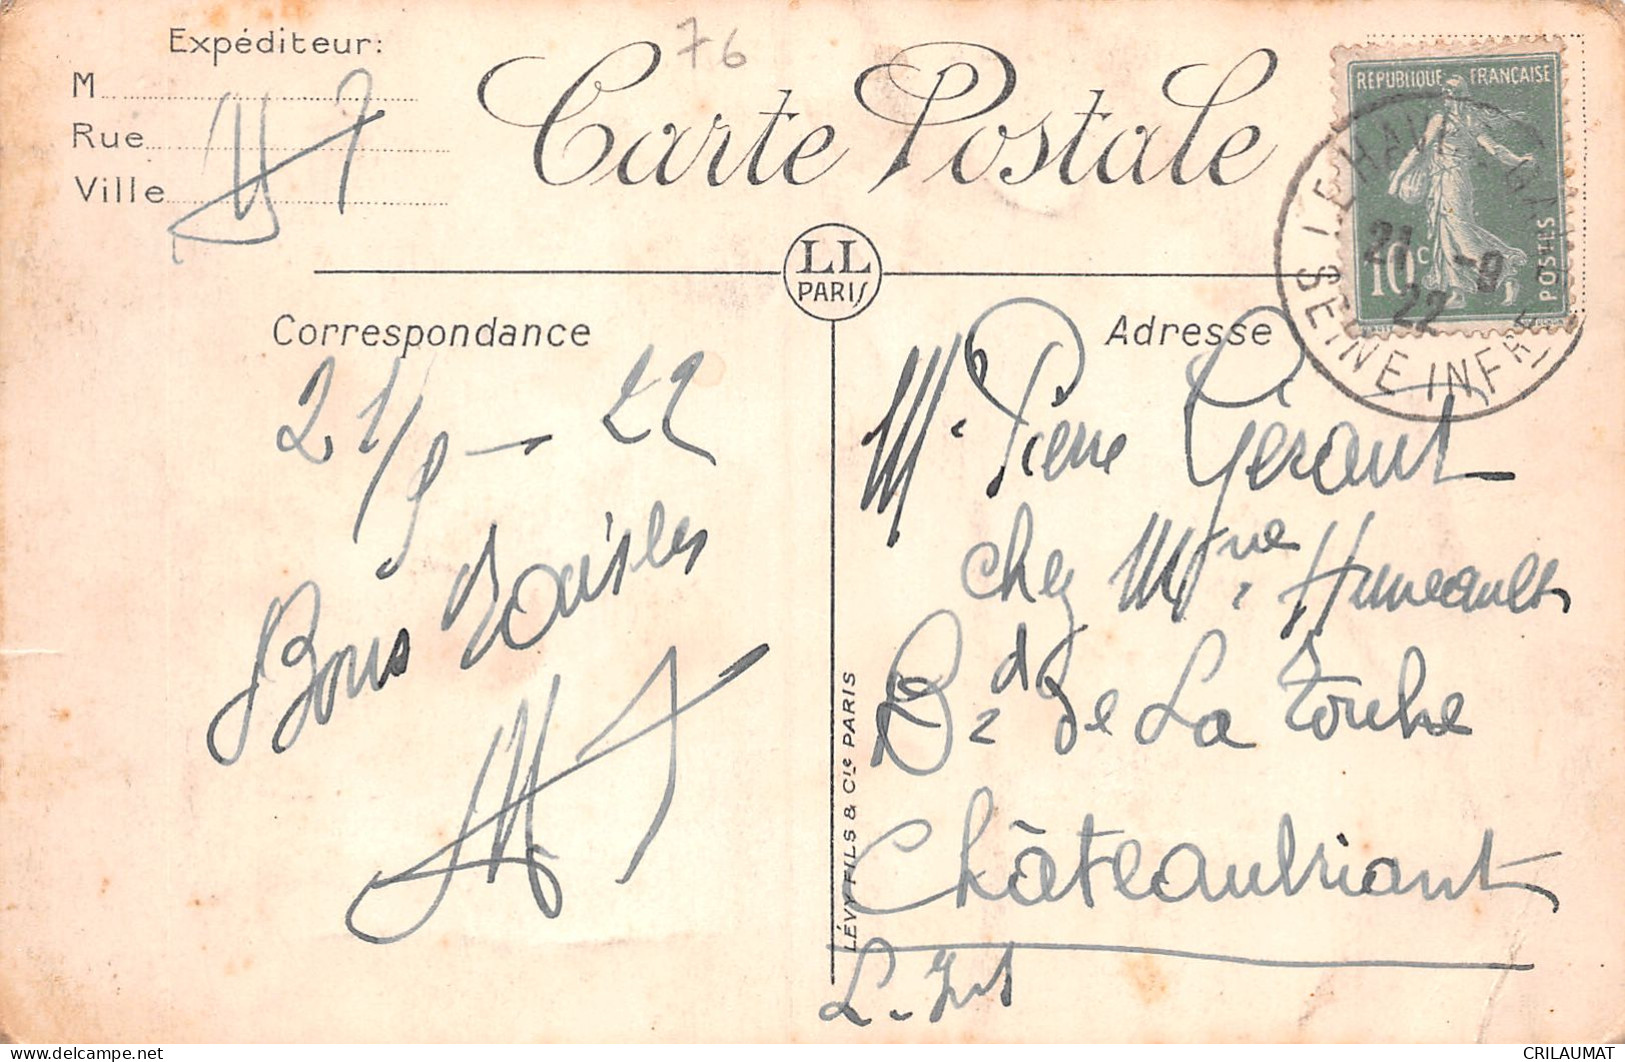 76
Expéditeur:
M
Rue
Ville
Carte Postale
RÉPUBLIQUE FRANÇAISE
10c
POSTES
LE HAVRE
21 -9
22
SEINE INFRE
LL
PARIS
Correspondance
21/9 - 22
Bons Baisers
LÉVY FILS & Cie PARIS
Adresse
Mr Pierre Gérault
chez Mme Huneault
Bd de La Torche
Châteaubriant
L. Inf
CRILAUMAT